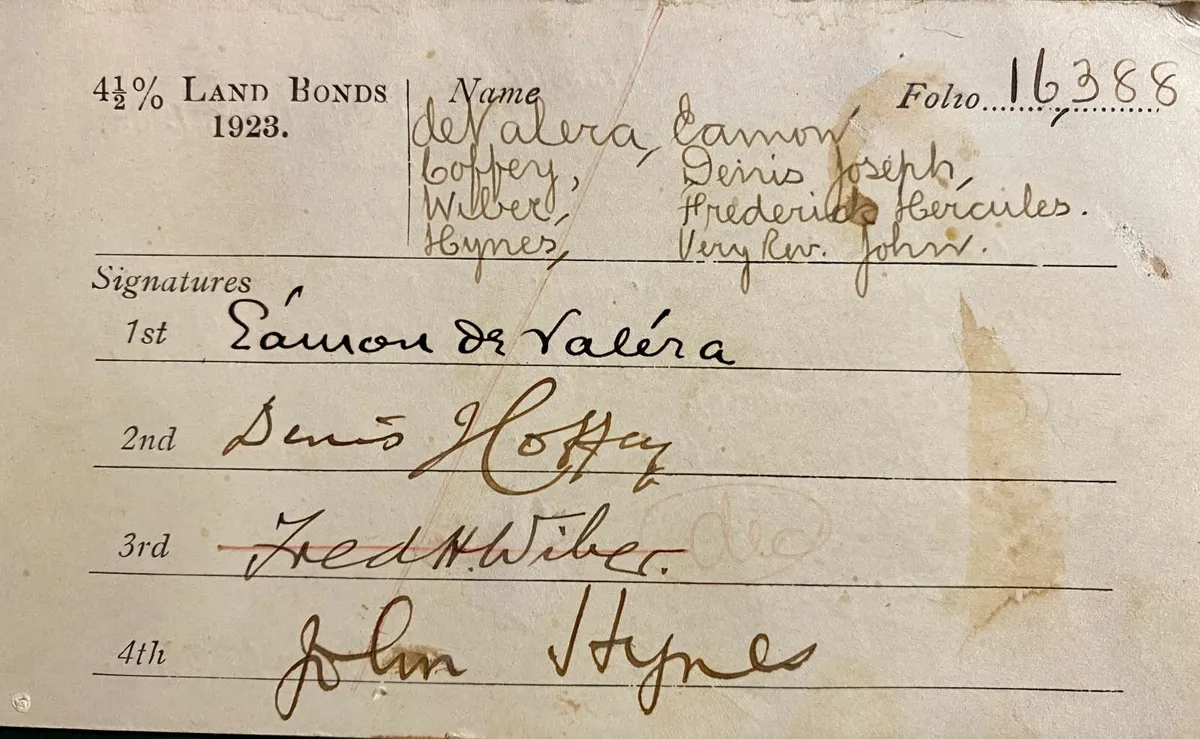 4½% LAND BONDS
1923.
Name
Folio 16,388
de Valera, Eamon,
Coffey, Denis Joseph,
Wiber, Frederick Hercules.
Hynes, Very Rev. John.
Signatures
1st Éamon de Valéra
2nd Denis J Coffey
3rd Fred H. Wiber.
dec
4th John Hynes